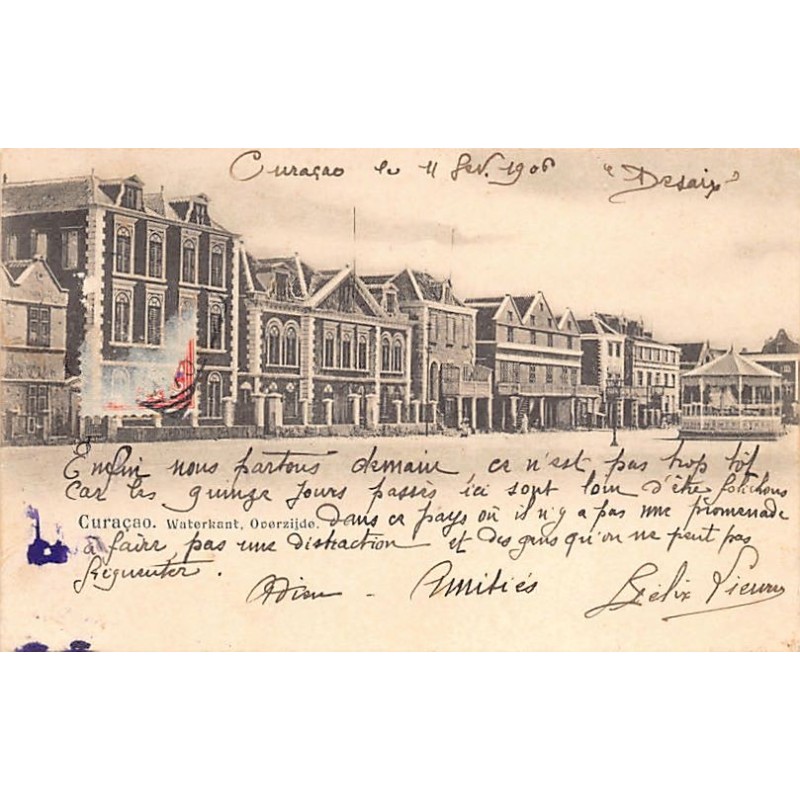 Curaçao le 11 fev. 1906 "Desaix"
Enfin nous partons demain, ce n'est pas trop tôt
Car les quinze jours passès ici sont loin d'être folichons
Curaçao. Waterkant, Overzijde.
Dans ce pays où il n'y a pas une promenade
à faire, pas une distraction et des gens qu'on ne peut pas
fréquenter.
Adieu - Amitiés Félix